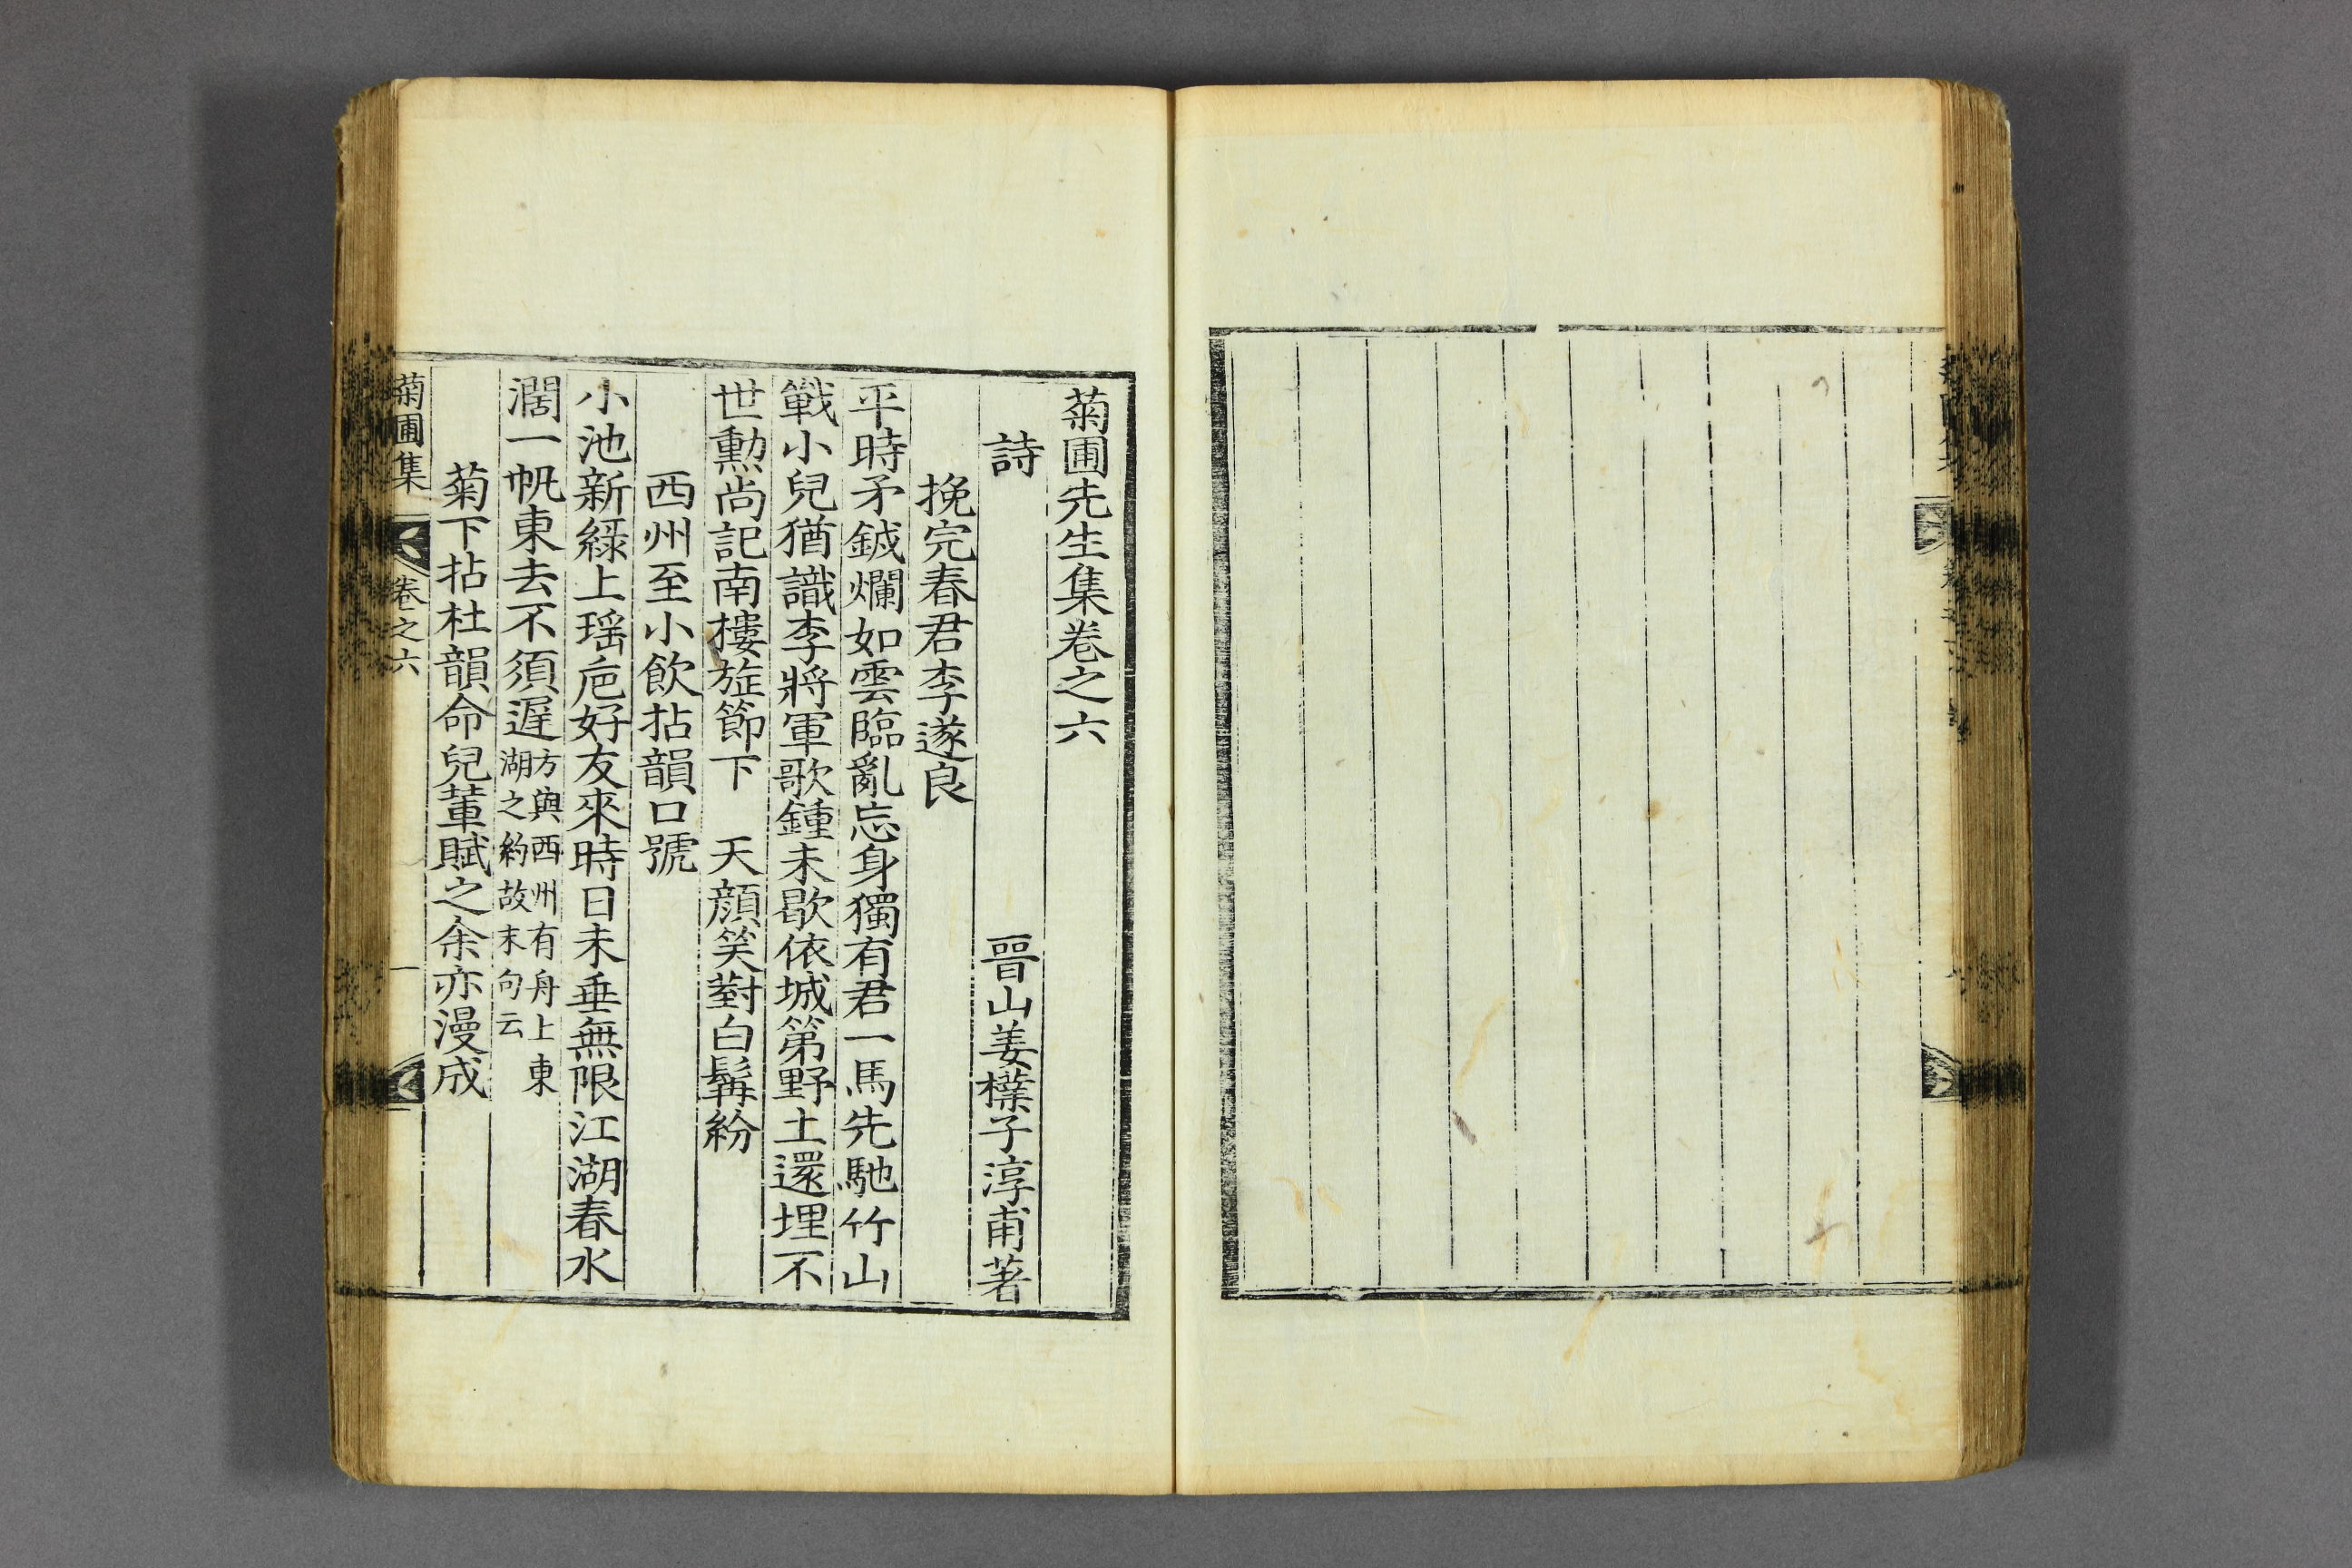 菊圃先生集卷之六
詩 晉山姜㰇子淳甫著
挽完春君李遂良
平時矛鉞爛如雲臨亂忘身獨有君一馬先馳竹山
戰小兒猶識李將軍歌鍾未歇依城第野土還埋不
世勳尚記南樓旌節下 天顔笑對白鬅紛
西州至小飲拈韻口號
小池新綠上瑶巵好友來時日未垂無限江湖春水
濶一帆東去不須遲方與西州有舟上東
湖之約故末句云
菊下拈杜韻命兒輩賦之余亦漫成
菊圃集 卷之六 一